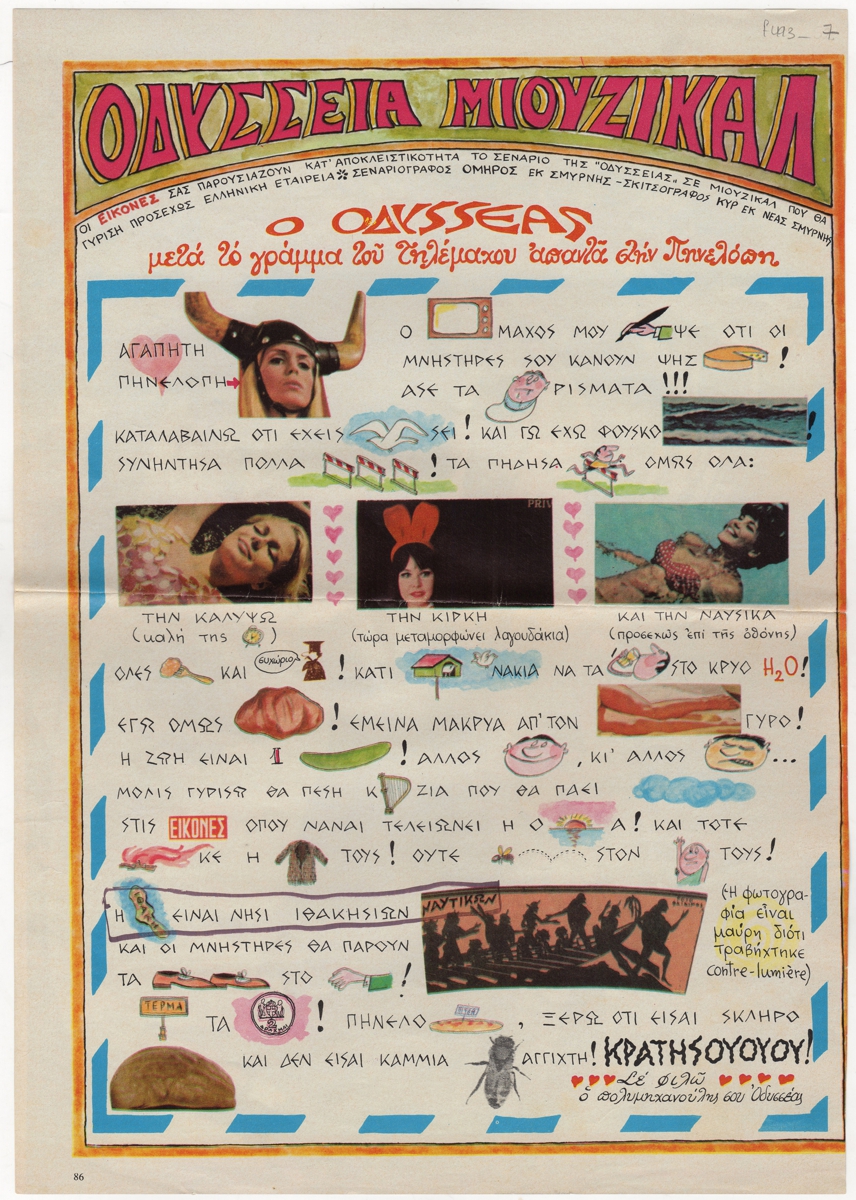 ΟΔΥΣΣΕΙΑ ΜΙΟΥΖΙΚΑΛ
ΟΙ ΕΙΚΟΝΕΣ ΣΑΣ ΠΑΡΟΥΣΙΑΖΟΥΝ ΚΑΤ' ΑΠΟΚΛΕΙΣΤΙΚΟΤΗΤΑ ΤΟ ΣΕΝΑΡΙΟ ΤΗΣ "ΟΔΥΣΣΕΙΑΣ" ΣΕ ΜΙΟΥΖΙΚΑΛ ΠΟΥ ΘΑ
ΓΥΡΙΣΗ ΠΡΟΣΕΧΩΣ ΕΛΛΗΝΙΚΗ ΕΤΑΙΡΕΙΑ * ΣΕΝΑΡΙΟΓΡΑΦΟΣ ΟΜΗΡΟΣ ΕΚ ΣΜΥΡΝΗΣ - ΣΚΙΤΣΟΓΡΑΦΟΣ ΚΥΡ ΕΚ ΝΕΑΣ ΣΜΥΡΝΗΣ
Ο ΟΔΥΣΣΕΑΣ
μετά τό γράμμα τοῦ Τηλέμαχου ἀπαντᾶ στήν Πηνελόπη
ΑΓΑΠΗΤΗ
ΠΗΝΕΛΟΠΗ
Ο ΜΑΧΟΣ ΜΟΥ ΨΕ ΟΤΙ ΟΙ
ΜΝΗΣΤΗΡΕΣ ΣΟΥ ΚΑΝΟΥΝ ΨΗΣ !
ΑΣΕ ΤΑ ΡΙΣΜΑΤΑ !!!
ΚΑΤΑΛΑΒΑΙΝΩ ΟΤΙ ΕΧΕΙΣ ΣΕΙ! ΚΑΙ ΓΩ ΕΧΩ ΦΟΥΣΚΟ !
ΣΥΝΗΝΤΗΣΑ ΠΟΛΛΑ ! ΤΑ ΠΗΔΗΣΑ ΟΜΩΣ ΟΛΑ:
PRIV
ΤΗΝ ΚΑΛΥΨΩ
(καλή της )
ΤΗΝ ΚΙΡΚΗ
(τώρα μεταμορφώνει λαγουδάκια)
ΚΑΙ ΤΗΝ ΝΑΥΣΙΚΑ
(προσεχώς ἐπί τῆς ὀθόνης)
ΟΛΕΣ ΚΑΙ ευχώριο ! ΚΑΤΙ ΝΑΚΙΑ ΝΑ ΤΑ ΣΤΟ ΚΡΥΟ Η2Ο!
ΕΓΩ ΟΜΩΣ ! ΕΜΕΙΝΑ ΜΑΚΡΥΑ ΑΠ' ΤΟΝ ΓΥΡΟ!
Η ΖΩΗ ΕΙΝΑΙ 1 ! ΑΛΛΟΣ , ΚΙ' ΑΛΛΟΣ ...
ΜΟΛΙΣ ΓΥΡΙΣΩ ΘΑ ΠΕΣΗ Κ ΖΙΑ ΠΟΥ ΘΑ ΠΑΕΙ
ΣΤΙΣ ΕΙΚΟΝΕΣ ΟΠΟΥ ΝΑΝΑΙ ΤΕΛΕΙΩΝΕΙ Η Ο Α! ΚΑΙ ΤΟΤΕ
ΚΕ Η ΤΟΥΣ! ΟΥΤΕ ΣΤΟΝ ΤΟΥΣ!
Η ΕΙΝΑΙ ΝΗΣΙ ΙΘΑΚΗΣΙΩΝ ΝΑΥΤΙΚΩΝ
ΚΑΙ ΟΙ ΜΝΗΣΤΗΡΕΣ ΘΑ ΠΑΡΟΥΝ
ΤΑ ΣΤΟ !
(Ἡ φωτογρα-
φία εἶναι
μαύρη διότι
τραβήχτηκε
contre-lumière)
ΤΕΡΜΑ ΤΑ 2 ! ΠΗΝΕΛΟ , ΞΕΡΩ ΟΤΙ ΕΙΣΑΙ ΣΚΛΗΡΟ
ΚΑΙ ΔΕΝ ΕΙΣΑΙ ΚΑΜΜΙΑ ΑΓΓΙΧΤΗ! ΚΡΑΤΗΣΟΥΟΥΟΥ!
Σέ φιλῶ
ὁ πολυμηχανούλης σου Ὀδυσσέας
86